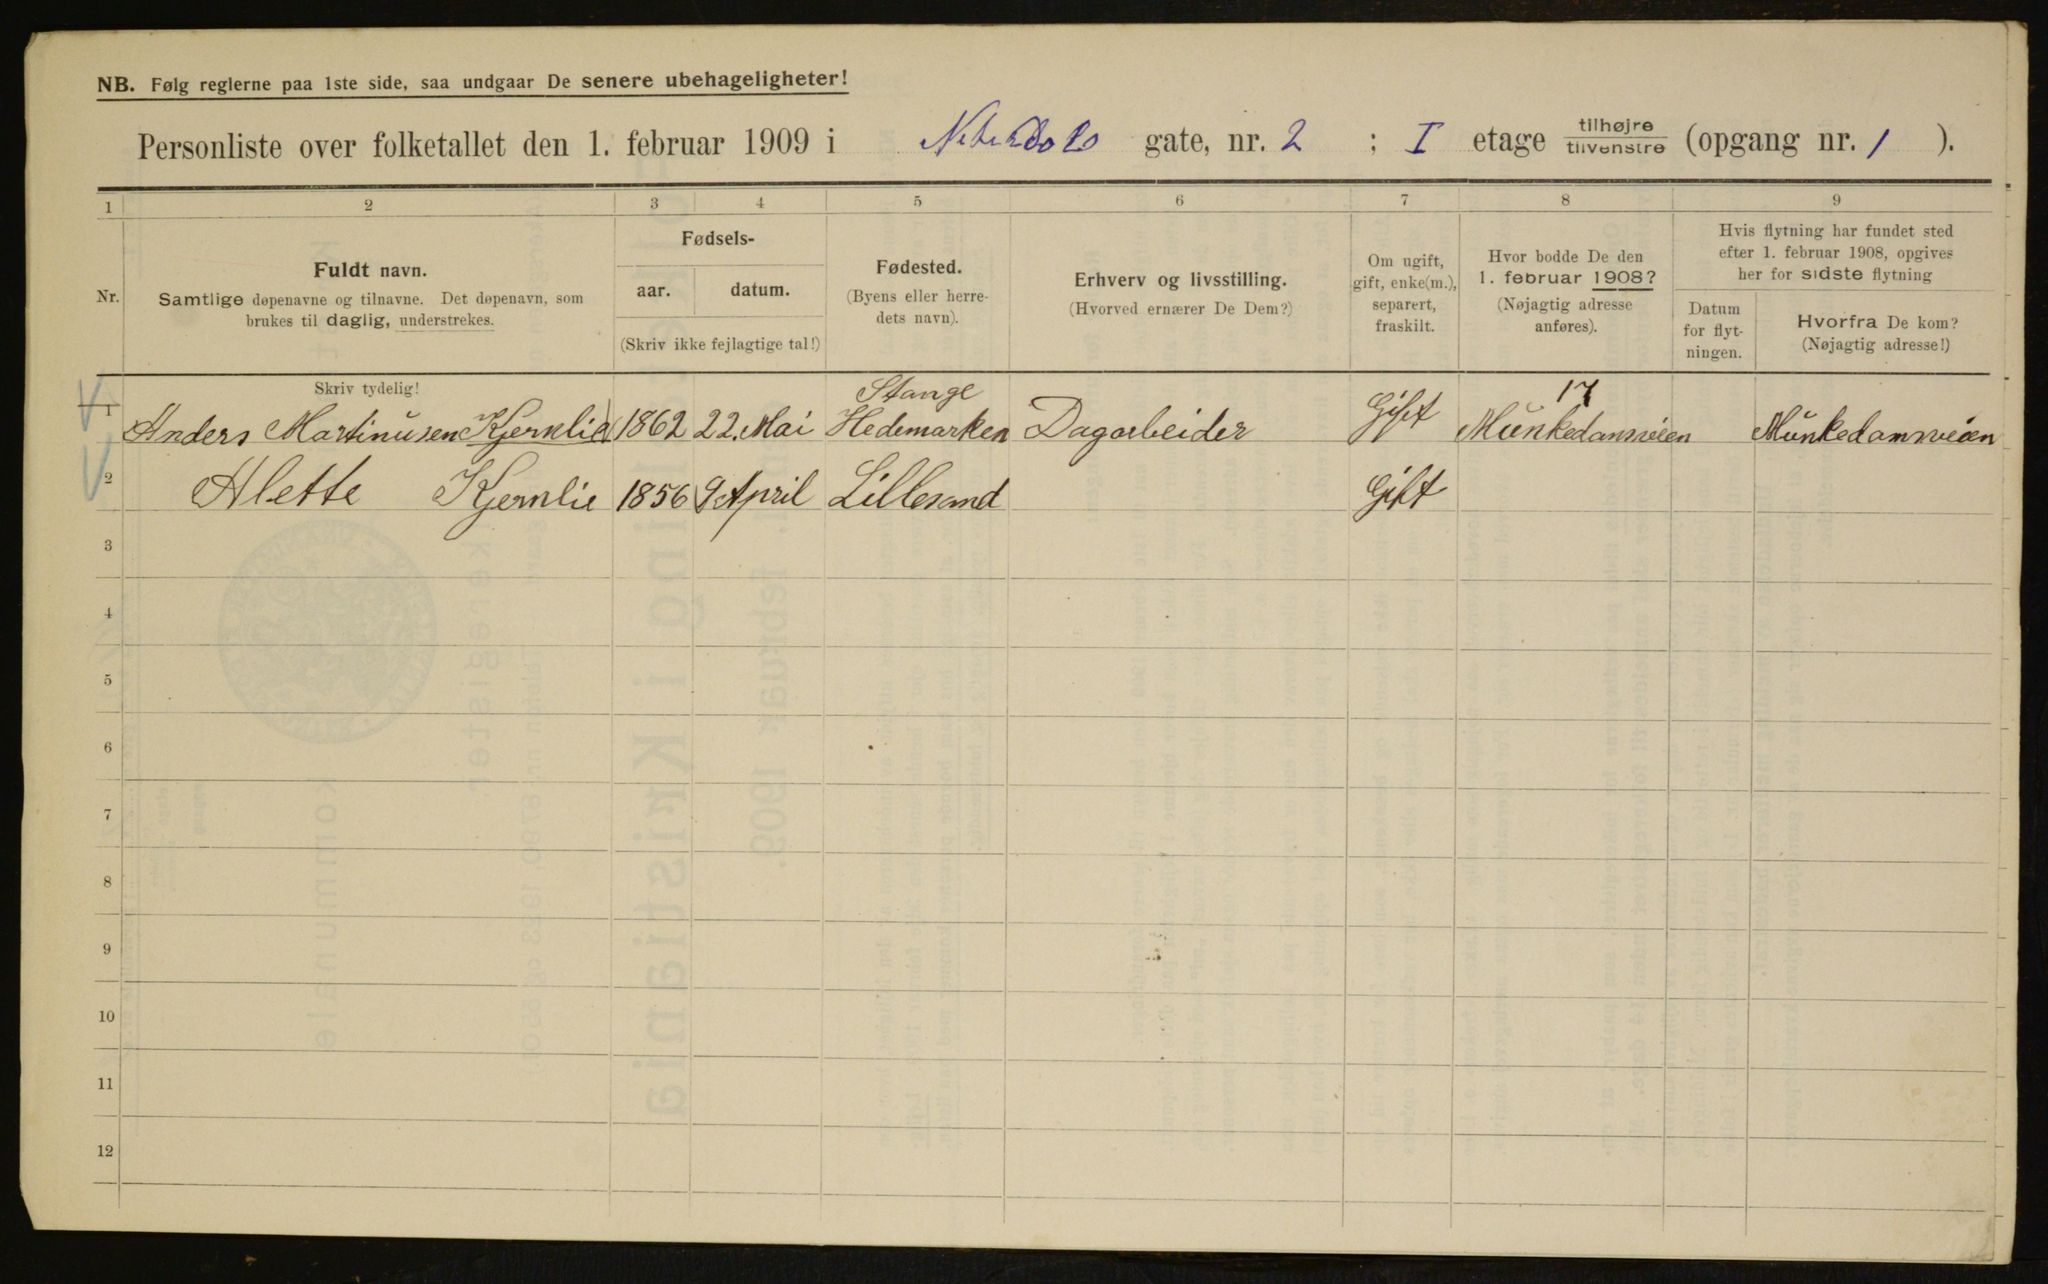 NB. Følg reglerne paa 1ste side, saa undgaar De senere ubehageligheter!
Personliste over folketallet den 1. februar 1909 i Niterdals gate, nr. 2 ; I etage tilhøjre / tilvenstre (opgang nr. 1 ).
1 2 3 4 5 6 7 8 9
Nr.
Fuldt navn.
Samtlige døpenavne og tilnavne. Det døpenavn, som
brukes til daglig, understrekes.
Fødsels-
aar. datum.
(Skriv ikke fejlagtige tal!)
Fødested.
(Byens eller herre-
dets navn).
Erhverv og livsstilling.
(Hvorved ernærer De Dem?)
Om ugift,
gift, enke(m.),
separert,
fraskilt.
Hvor bodde De den
1. februar 1908?
(Nøjagtig adresse
anføres).
Hvis flytning har fundet sted
efter 1. februar 1908, opgives
her for sidste flytning
Datum
for flyt-
ningen.
Hvorfra De kom?
(Nøjagtig adresse!)
Skriv tydelig!
Stange 17
1 Anders Martinusen Kjernlie 1862 22. Mai Hedemarken Dagarbeider Gift Munkedamsveien Munkedamsveien
2 Alette Kjernlie 1856 9 April Lillesand Gift
3
4
5
6
7
8
9
10
11
12